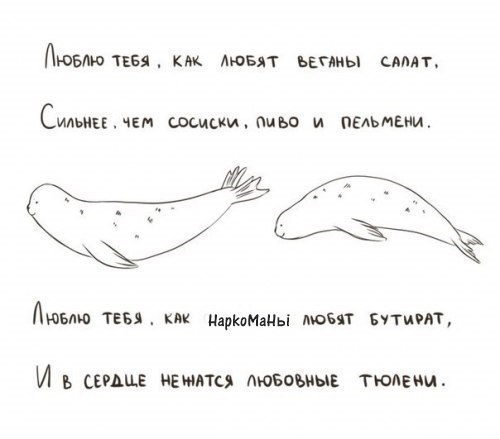 Люблю тебя, как любят веганы салат,
Сильнее, чем сосиски, пиво и пельмени.
Люблю тебя, как НаркоМаНы любят бутират,
И в сердце нежатся любовные тюлени.